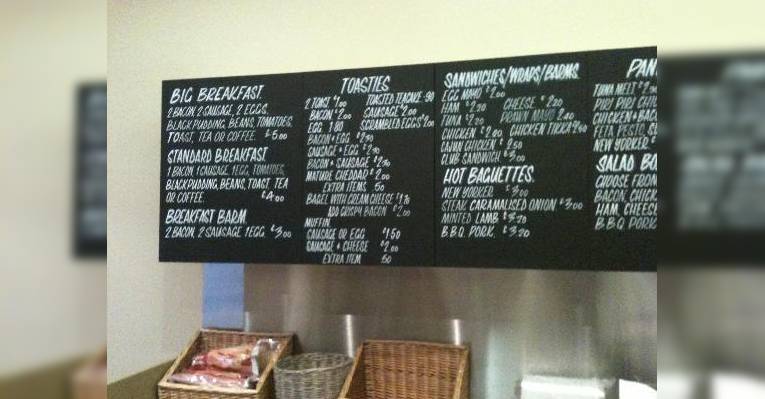 BIG BREAKFAST
2 BACON, 2 SAUSAGE, 2 EGGS,
BLACKPUDDING, BEANS, TOMATOES,
TOAST, TEA OR COFFEE. £5.00
STANDARD BREAKFAST
1 BACON, 1 SAUSAGE, 1 EGG, TOMATOES,
BLACKPUDDING, BEANS, TOAST, TEA
OR COFFEE. £4.00
BREAKFAST BARM
2 BACON, 2 SAUSAGE, 1 EGG £3.00
TOASTIES
2 TOAST £1.00 TOASTED TEACAKE .90
BACON £2.00 SAUSAGE £2.00
EGG 1.80 SCRAMBLED EGGS £2.00
BACON + EGG
SAUSAGE + EGG
BACON + SAUSAGE
MATURE CHEDDAR £2.00
EXTRA ITEMS .50
BAGEL WITH CREAM CHEESE
ADD CRISPY BACON £2.00
MUFFIN
SAUSAGE OR EGG £1.50
SAUSAGE + CHEESE £2.00
EXTRA ITEM .50
SANDWICHES/WRAPS/BARMS
EGG MAYO £2.00
HAM £2.20 CHEESE £2.20
TUNA £2.20 PRAWN MAYO
CHICKEN CHICKEN TIKKA
CHICKEN £2.50
CLUB SANDWICH £3.00
HOT BAGUETTES
NEW YORKER £3.00
STEAK CARAMALISED ONION £3.00
MINTED LAMB £3.20
B.B.Q. PORK. £3.20
PAN
TUNA MELT
PIRI PIRI
CHICKEN + BAC
FETA, PESTO,
NEW YORKER
SALAD BO
CHOOSE FROM
BACON, CHICK
HAM, CHEESE
B.B.Q. PORK